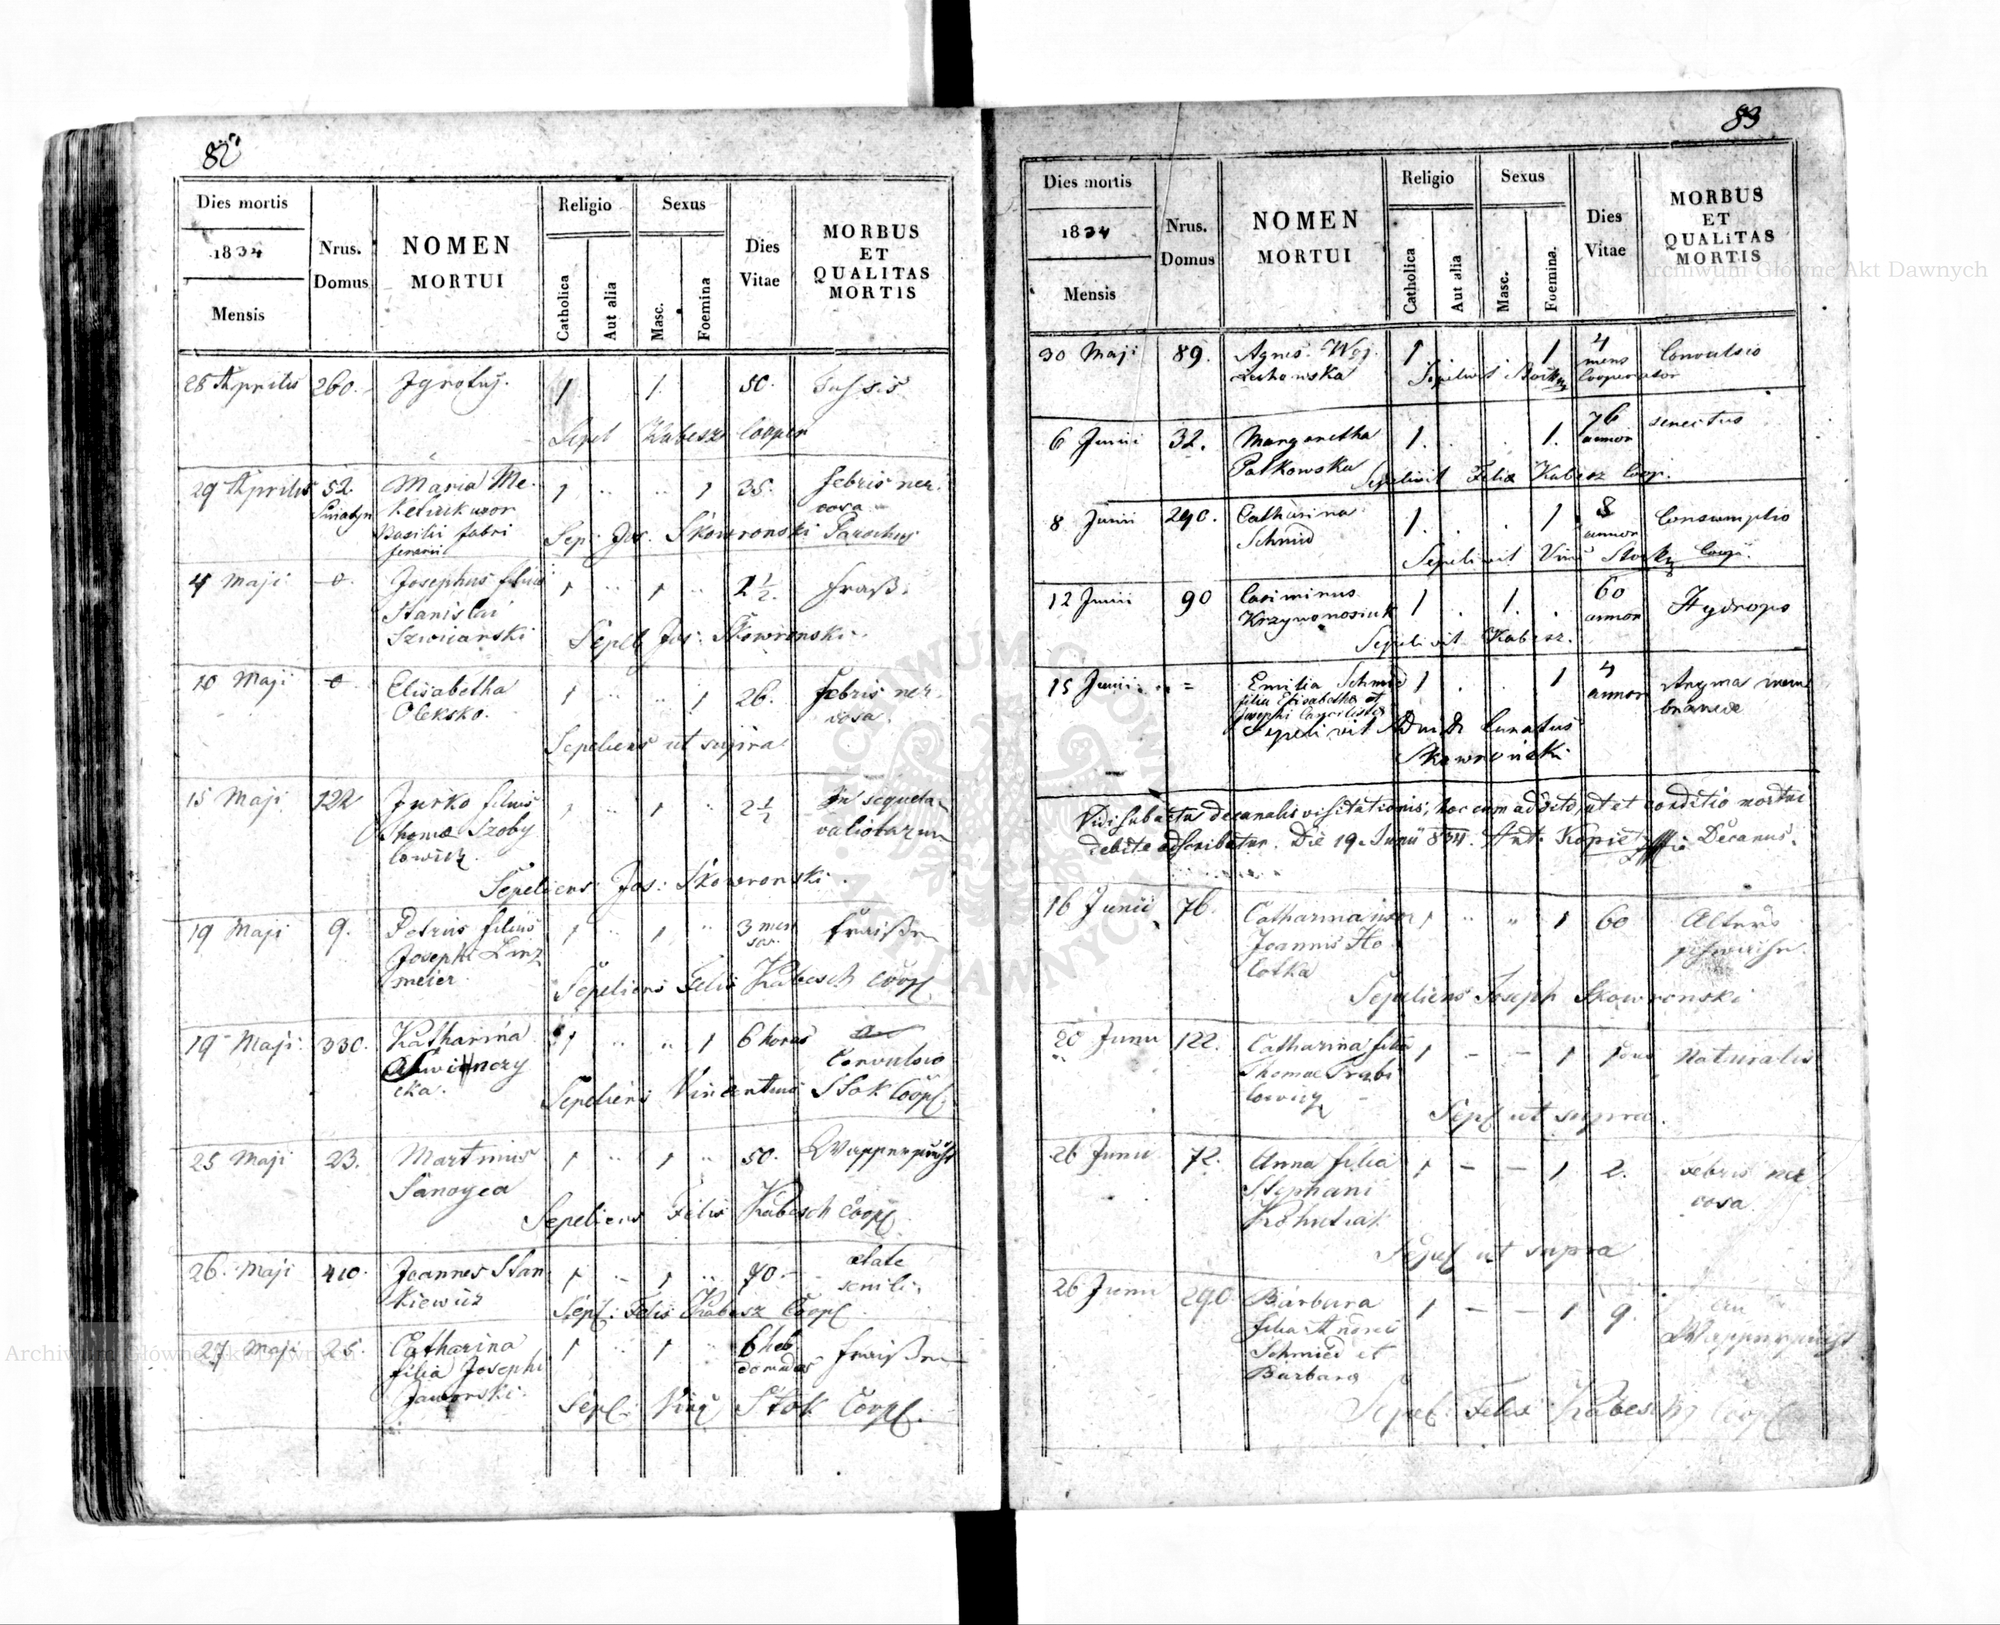 82
Dies mortis
1834
Mensis
Nrus.
Domus
NOMEN
MORTUI
Religio
Catholica
Aut alia
Sexus
Masc.
Foemina
Dies
Vitae
MORBUS
ET
QUALITAS
MORTIS
28 Aprilis 260. 1 1. 50. Tussis.
Sepel Kabesz Cooper
29 Aprilis 52. Maria Me- 1 " " 1 35. febris ner-
Sniatyn uxor vosa
Basilii fabri
ferarii
Sep: Jos. Skowronski Parochus
4 Maji 0. Josephus filius 1 " 1 " 2 1/2. Fraiß.
Stanislai
Sepel Jos: Skowronski.
10 Maji 0 Elisabetha 1 " " 1 26. Febris ner-
Oleksko. vosa.
Sepeliens ut supra
15 Maji 122 Jurko filius 1 " 1 " 2 1/2 In sequela
Thomae Szoby variolarum
lowicz.
Sepeliens: Jos: Skowronski.
19 Maji 9. Petrus filius 1 " 1 " 3 men Fraißen
Josephi Linz ses.
meier.
Sepeliens Felix Kabesch Coopf.
19 Maji. 330. Katharina 1 " " 1 6 horas
Convulsio
cka.
Sepeliens Vincentius Stok Coopf.
25 Maji 23. Martinus 1 " 1 " 50. Wassersucht
Sanoyca
Sepeliens Felix Kabesch Coopf.
26. Maji 410. Joannes Stan 1 " 1 " 70. etate
kiewicz senili.
Sepf: Felix Kabesz Coopf
27 Maji 25. Catharina 1 1 " 6 heb Fraißen
filia Josephi domadas
Jaworski.
Sepf: Vinc Stok Coopf.
83
Dies mortis
1834
Mensis
Nrus.
Domus
NOMEN
MORTUI
Religio
Catholica
Aut alia
Sexus
Masc.
Foemina.
Dies
Vitae
MORBUS
ET
QUALiTAS
MORTIS
30 Maji 89. Agnes 1 1 4 Convulsio
mens
Sepelivit Cooperator
6 Junii 32. Margaretha 1. . . 1. 76 senectus
Patkowska annor
Sepelivit Felix Kabesz Coop.
8 Junii 290. Catharina 1. . . 1 8 Consumptio
Schmid annor
Sepelivit Vinc Coop.
12 Junii 90 Casimirus 1 . 1. . 60 Hydrops
Krzywonosiuk annor
Sepelivit Kabesz.
15 Junii. = Emilia Schmid 1 . . 1 4 Angina mem
filia Elisabetha et annor branae
Josephi
Sepelivit Curatus
Skowroński
Vidi sub actu decanalis visitationis, hoc cum addito, ut et conditio mortui
debite adscribatur. Die 19. Junii 834. Ant. Decanus.
16 Junii 76. Catharina uxor 1 " " 1 60 Alters
Joannis Ho schwäche.
lotka
Sepeliens Joseph Skowronski
20 Junii 122. Catharina filia 1 - - 1 Naturalis
Thomae
lowicz
Sepf ut supra.
26 Junii 72. Anna filia 1 - - 1 2. Febris ner
Stephani vosa.
Kohutiak
Sepf ut supra
26 Junii 290 Barbara 1 - - 1 9. an
filia Andreis Wassersucht
Schmied et
Barbara
Sepef: Felix Kabesch Coopf
Archiwum Główne Akt Dawnych
Archiwum Główne Akt Dawnych
ARCHIWUM GŁÓWNE AKT DAWNYCH